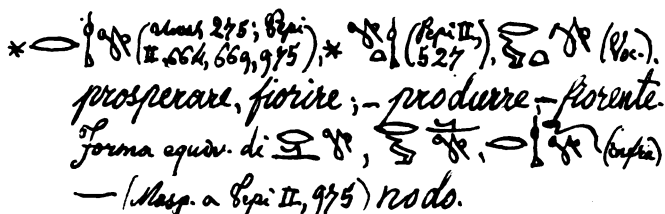 * (Unas 275; Pepi II, 664, 669, 975), * (Pepi II, 527), (Voc.).
prosperare, fiorire; – produrre; – fiorente.
Forma equiv. di , , (infra)
— (Masp. a Pepi II, 975) nodo.